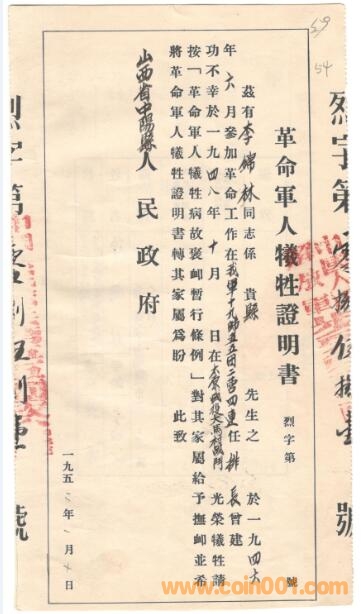 59
54
烈字第捌伍捌壹號
革命軍人犧牲證明書 烈字第 號
茲有李林同志係 貴縣 先生之 於一九四六
年六月參加革命工作在我軍十九師五五团二营四連任排長曾建
功不幸於一九四八年十月 日在太原战役村战鬥光榮犧牲請
按「革命軍人犧牲病故褒卹暫行條例」對其家屬給予撫卹並希
將革命軍人犧牲證明書轉其家屬為盼 此致
山西省中陽縣人民政府
一九五 年 月 日
烈字第捌伍捌壹號
www.coin001.com